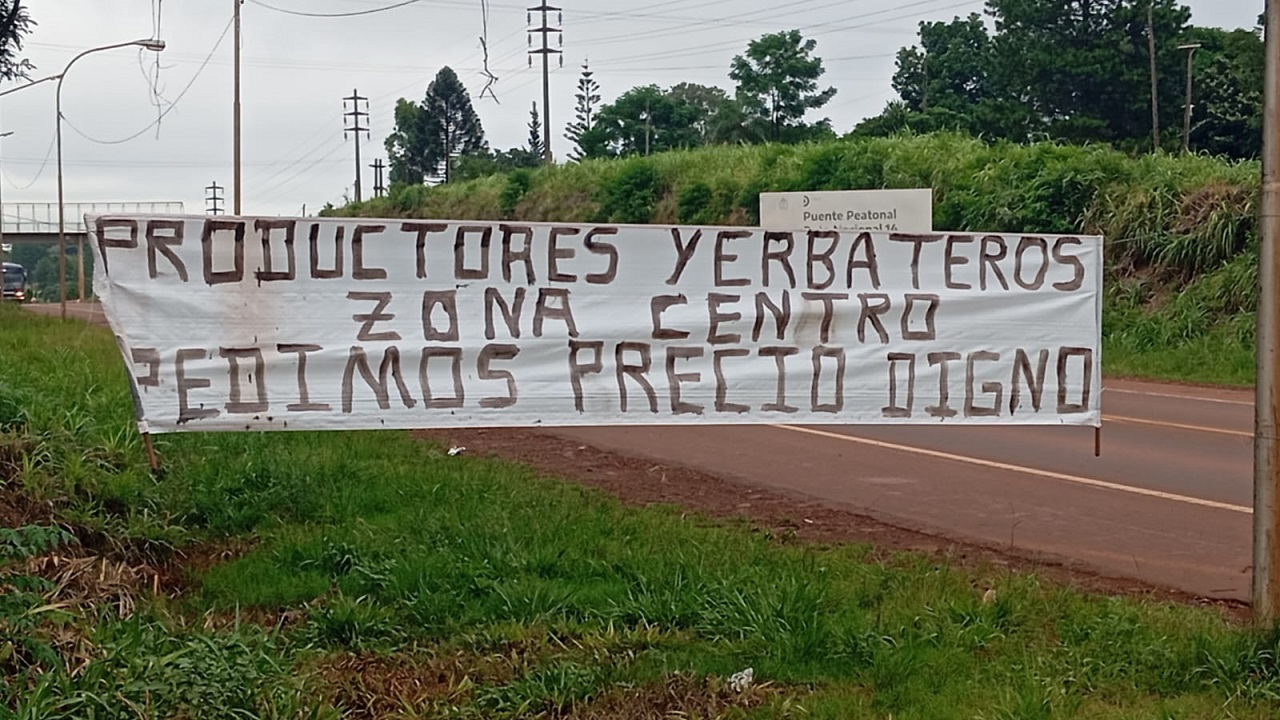 Puente Peatonal
Ruta Nacional 14
PRODUCTORES YERBATEROS
ZONA CENTRO
PEDIMOS PRECIO DIGNO